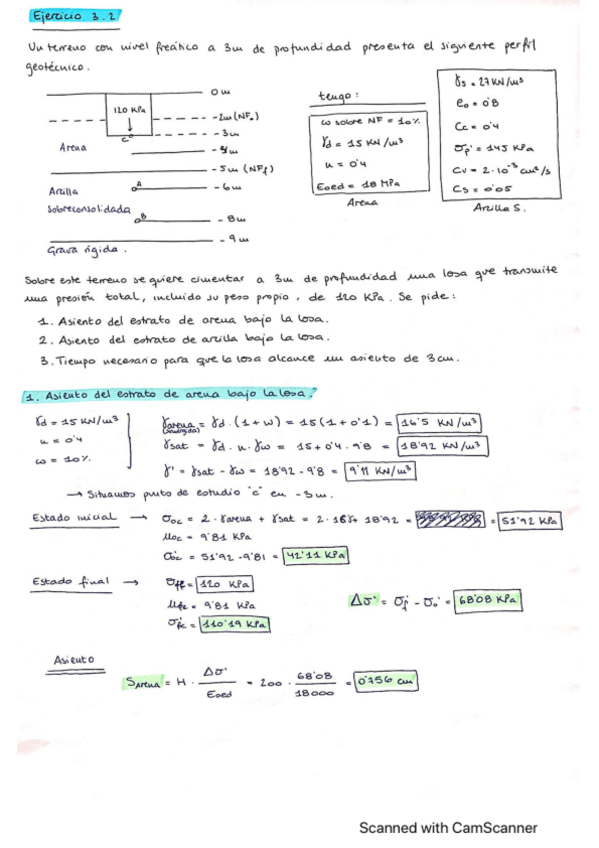 Ejercicio 3.2
Un terreno con nivel freático a 3m de profundidad presenta el siguiente perfil
geotécnico.
0m
120 KPa
-2m (NFo)
c
-3m
Arena
-4m
-5m (NFf)
A
-6m
Arcilla
sobreconsolidada
B
-8m
-9m
Grava rígida.
tengo:
ω sobre NF = 10%
γd = 15 KN/m³
n = 0'4
Eoed = 18 MPa
Arena
γs = 27 KN/m³
e₀ = 0'8
Cc = 0'4
σp' = 145 KPa
Cv = 2·10⁻³ cm²/s
Cs = 0'05
Arcilla S.
Sobre este terreno se quiere cimentar a 3m de profundidad una losa que transmite
una presión total, incluido su peso propio, de 120 KPa. Se pide:
1. Asiento del estrato de arena bajo la losa.
2. Asiento del estrato de arcilla bajo la losa.
3. Tiempo necesario para que la losa alcance un asiento de 3cm.
1. Asiento del estrato de arena bajo la losa."
γd = 15 KN/m³
n = 0'4
ω = 10%
γarena = γd · (1 + ω) = 15 (1 + 0'1) = 16'5 KN/m³
γsat = γd · n · γω = 15 + 0'4 · 9'8 = 18'92 KN/m³
γ' = γsat - γω = 18'92 - 9'8 = 9'11 KN/m³
→ Situamos punto de estudio "c" en -3m.
Estado inicial → σoc = 2 · γarena + γsat = 2 · 16'5 + 18'92 = = 51'92 KPa
μoc = 9'81 KPa
σoc' = 51'92 - 9'81 = 42'11 KPa
Estado final → σff = 120 KPa
μfc = 9'81 KPa
σ'fc = 110'19 KPa
Δσ' = σf' - σo' = 68'08 KPa
Asiento
SArena = H · Δσ' / Eoed = 200 · 68'08 / 18000 = 0'756 cm
Scanned with CamScanner